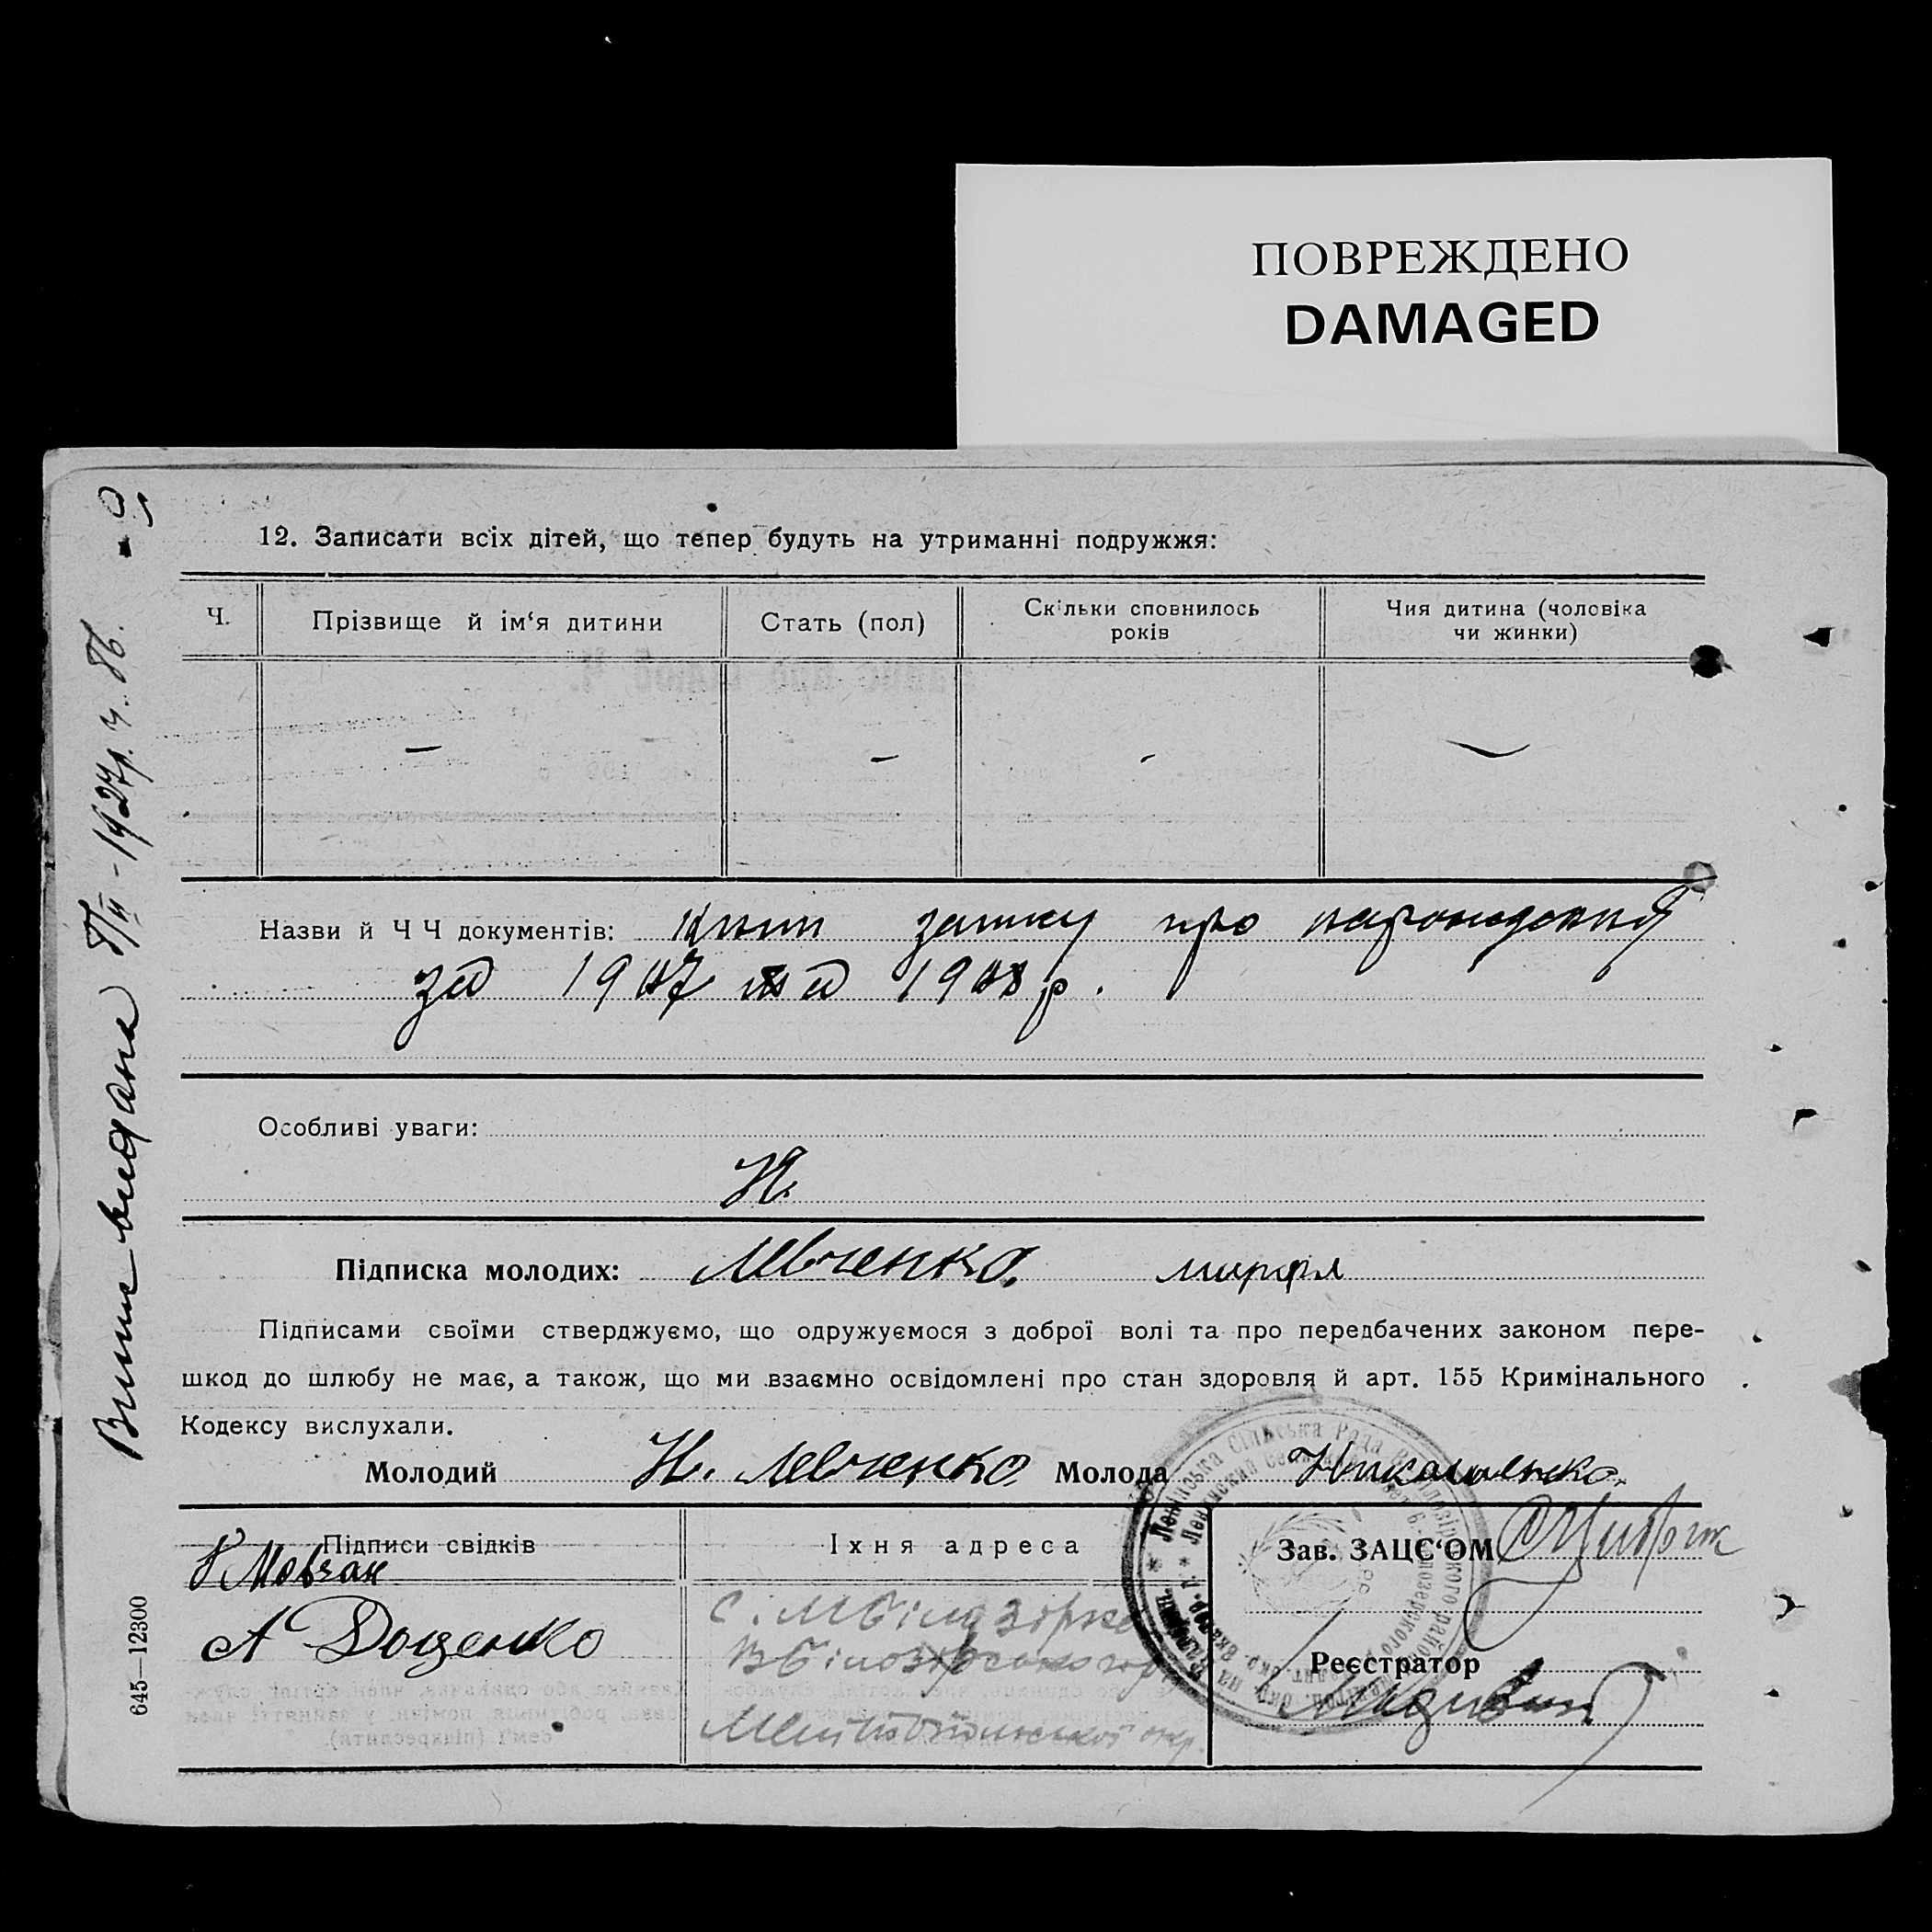 ПОВРЕЖДЕНО
DAMAGED
12. Записати всіх дітей, що тепер будуть на утриманні подружжя:
Ч.
Прізвище й ім‘я дитини
Стать (пол)
Скільки сповнилось років
Чия дитина (чоловіка чи жинки)
Назви й Ч Ч документів: книги запису про народження
за 1907 та 1908 р.
Особливі уваги:
Підписка молодих: Левченко.
Підписами своїми стверджуємо, що одружуємося з доброї волі та про передбачених законом пере-
шкод до шлюбу не має, а також, що ми взаємно освідомлені про стан здоровля й арт. 155 Кримінального
Кодексу вислухали.
Молодий Н. Левченко Молода Николаенко
Підписи свідків
Іхня адреса
Зав. ЗАЦС‘ОМ
Мовчан
А Доценко
с. М Білозірка
В Білозірського
Мелітопольської окр.
Реєстратор
645—12300
видана
1927р. ч. 86.